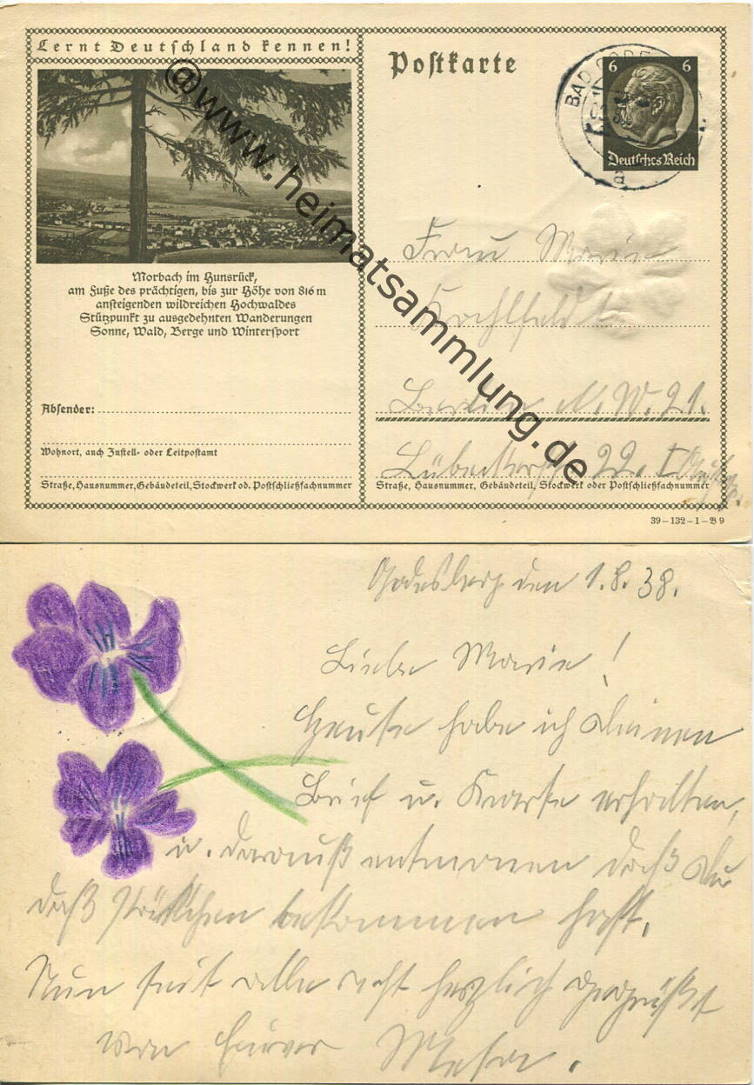 Lernt Deutschland kennen!
Postkarte
BAD GODE
6 6
Deutsches Reich
a
Morbach im Hunsrück,
am Fuße des prächtigen, bis zur Höhe von 816 m
ansteigenden wildreichen Hochwaldes
Stützpunkt zu ausgedehnten Wanderungen
Sonne, Wald, Berge und Wintersport
Frau Marie
Berlin N.W. 21.
Lübeckerstr 22. I
Absender:
Wohnort, auch Zustell- oder Leitpostamt
Straße, Hausnummer, Gebäudeteil, Stockwerk od. Postschließfachnummer
Straße, Hausnummer, Gebäudeteil, Stockwerk oder Postschließfachnummer
39-132-1-B9
@www.heimatsammlung.de
Godesberg den 1.8.38.
Liebe Marie!
Heute habe ich deinen
Brief u. Karte erhalten,
u. darauß entnomen daß du
daß bekommen hast.
Nun seit alle recht herzlich gegrüßt
von